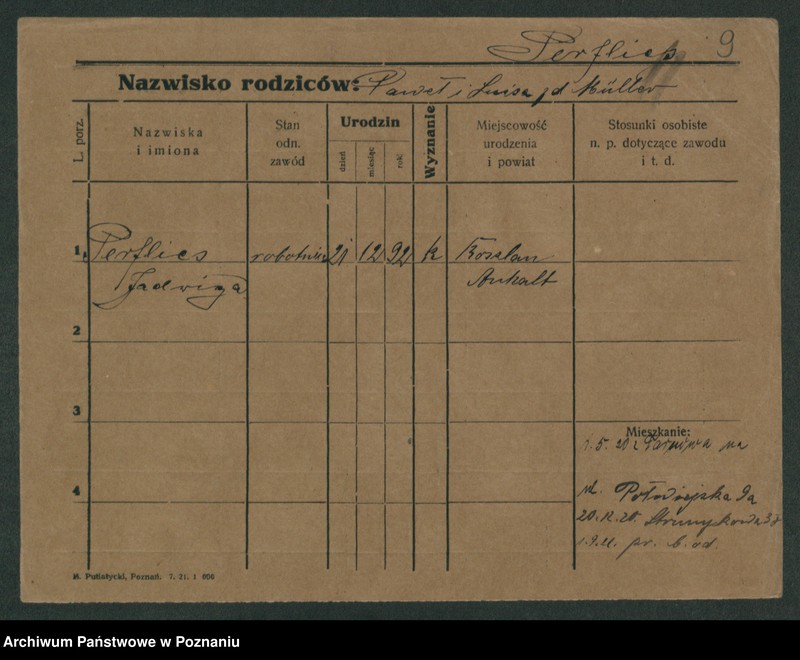 Perflies 9
Nazwisko rodziców: Paweł i Luisa z d Müller
L. porz.
Nazwiska
i imiona
Stan
odn.
zawód
Urodzin
dzień
miesiąc
rok
Wyznanie
Miejscowość
urodzenia
i powiat
Stosunki osobiste
n. p. dotyczące zawodu
i t. d.
1. Perflies robotnica 21 12 92 k Kosslau
Jadwiga Anhalt
2
3
Mieszkanie:
1. 5. 20 z na
4
ul. Półwiejska 9a
20.12.20. Strumykowa
1.9.21. pr. b. od.
M. Putiatycki, Poznań. 7. 21. 1 000
Archiwum Państwowe w Poznaniu